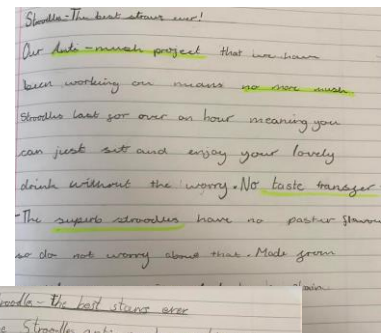 Stroodles - The best straws ever!
Our Anti-mush project that we have
been working on means no more mush
Stroodles last for over an hour meaning you
can just sit and enjoy your lovely
drink without the worry. No taste transfer
- The superb stroodles have no pasta flavour
so do not worry about that. Made from
Stroodles - the best straws ever